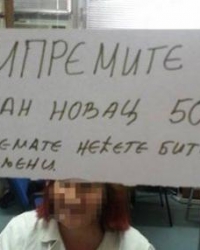 ИПРЕМИТЕ
АН НОВАЦ 50
ЕМАТЕ НЕЋЕТЕ БИТ
ЕНИ.